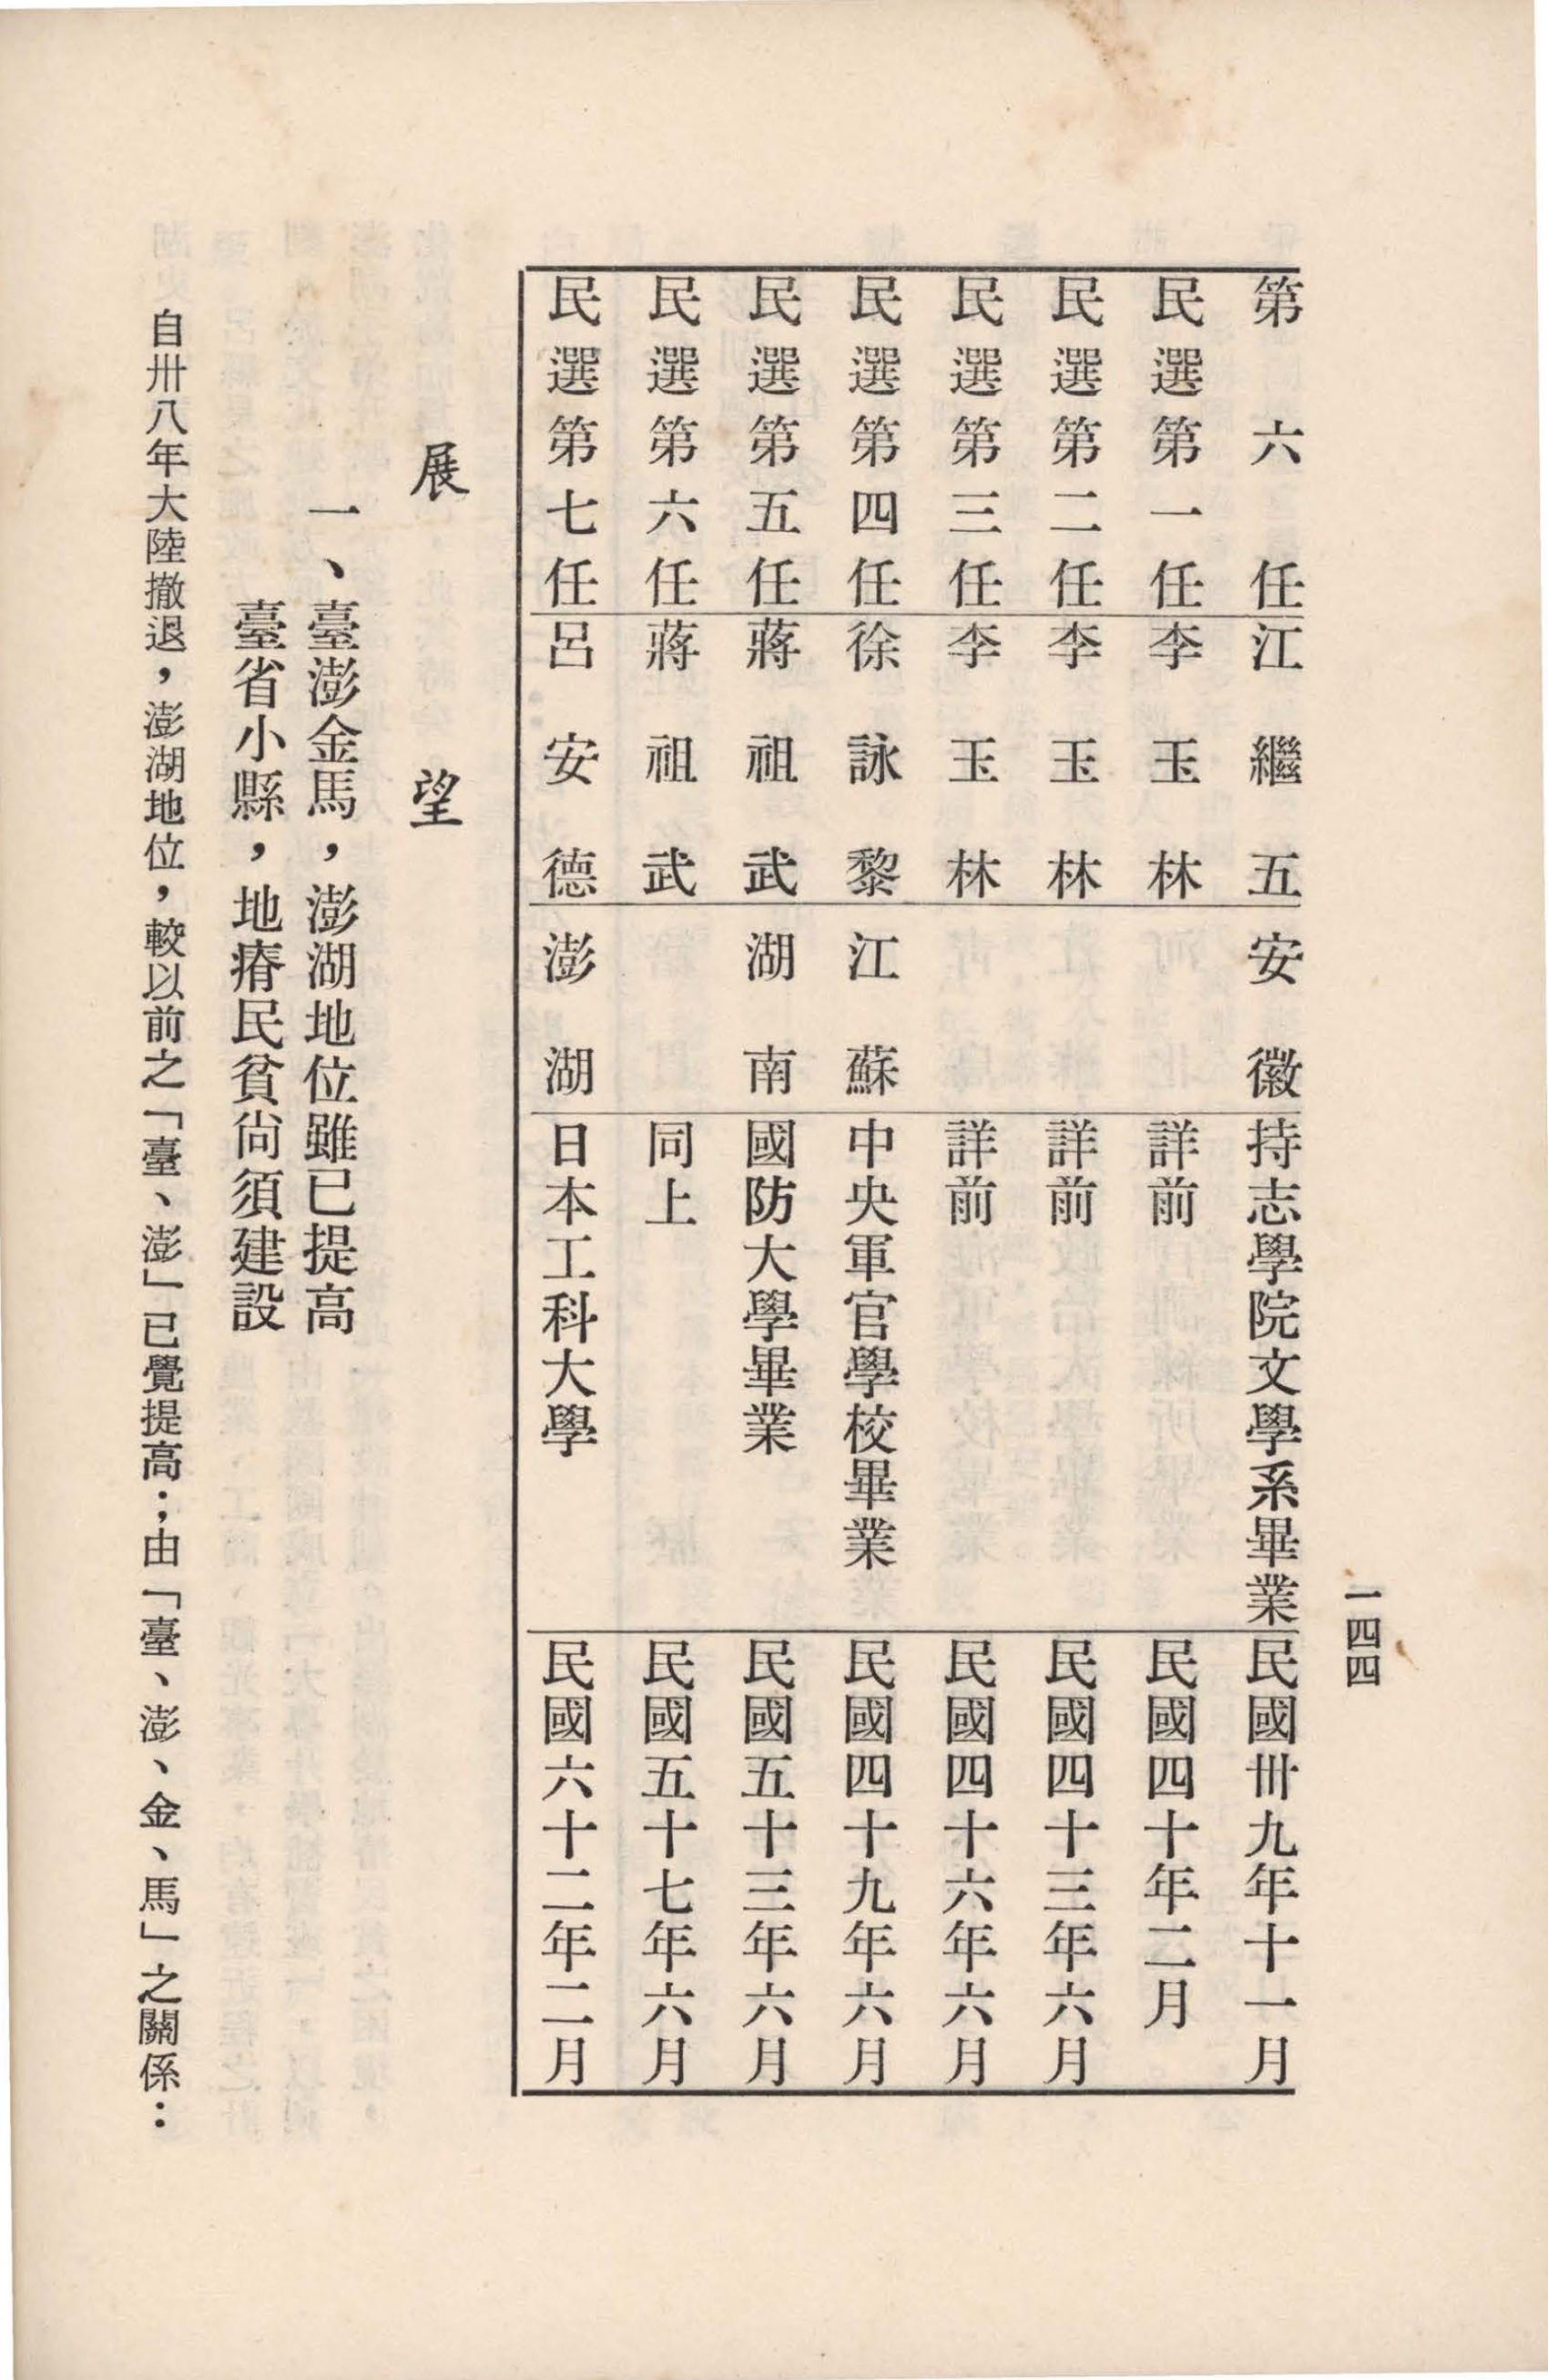 一四四
第六任 江繼五 安徽 持志學院文學系畢業 民國卅九年十一月
民選第一任 李玉林 詳前 民國四十年二月
民選第二任 李玉林 詳前 民國四十三年六月
民選第三任 李玉林 詳前 民國四十六年六月
民選第四任 徐詠黎 江蘇 中央軍官學校畢業 民國四十九年六月
民選第五任 蔣祖武 湖南 國防大學畢業 民國五十三年六月
民選第六任 蔣祖武 同上 民國五十七年六月
民選第七任 呂安德 澎湖 日本工科大學 民國六十二年二月
展望
一、臺澎金馬，澎湖地位雖已提高
臺省小縣，地瘠民貧尙須建設
自卅八年大陸撤退，澎湖地位，較以前之「臺、澎」已覺提高；由「臺、澎、金、馬」之關係：